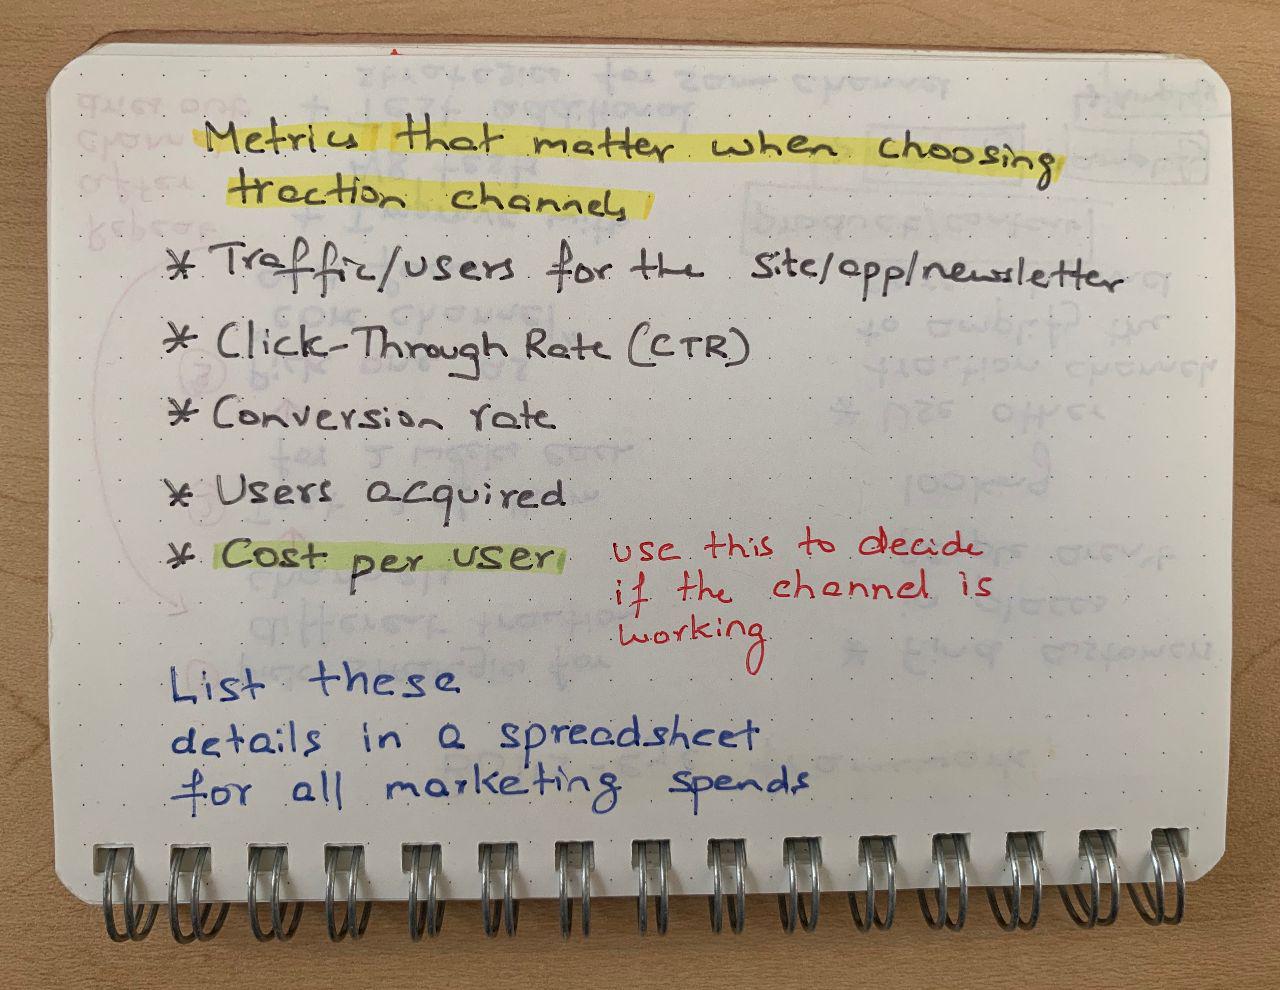 Metrics that matter when choosing
traction channels
* Traffic/users for the site/app/newsletter
* Click-Through Rate (CTR)
* Conversion rate
* Users acquired
* Cost per user
use this to decide
if the channel is
working
List these
details in a spreadsheet
for all marketing spends